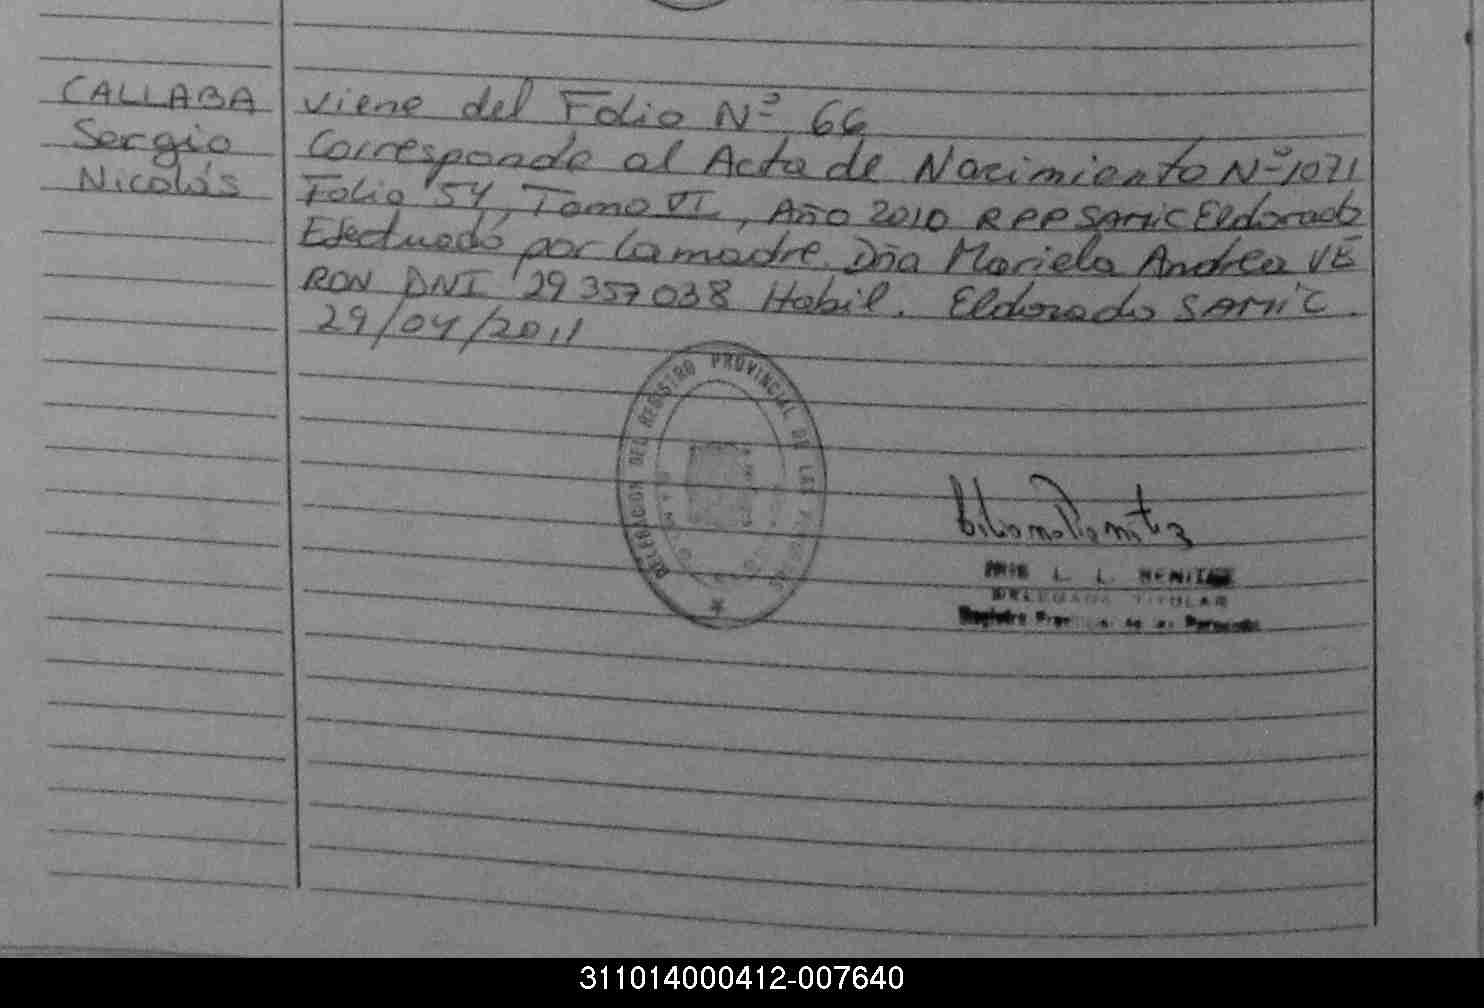 CALLABA
Sergio
Nicolás
Viene del Folio Nº 66
Corresponde al Acta de Nacimiento Nº 1071
Folio 54, Tomo VI, Año 2010 RPP SAMIC Eldorado
Efectuado por la madre Dña Mariela Andrea VE
RON DNI 29357038 Habil. Eldorado SAMIC.
29/04/2011
DELEGACION DEL REGISTRO PROVINCIAL DE LAS PERSONAS
L. L. BENITEZ
DELEGADA TITULAR
Registro Provincial de las Personas
311014000412-007640